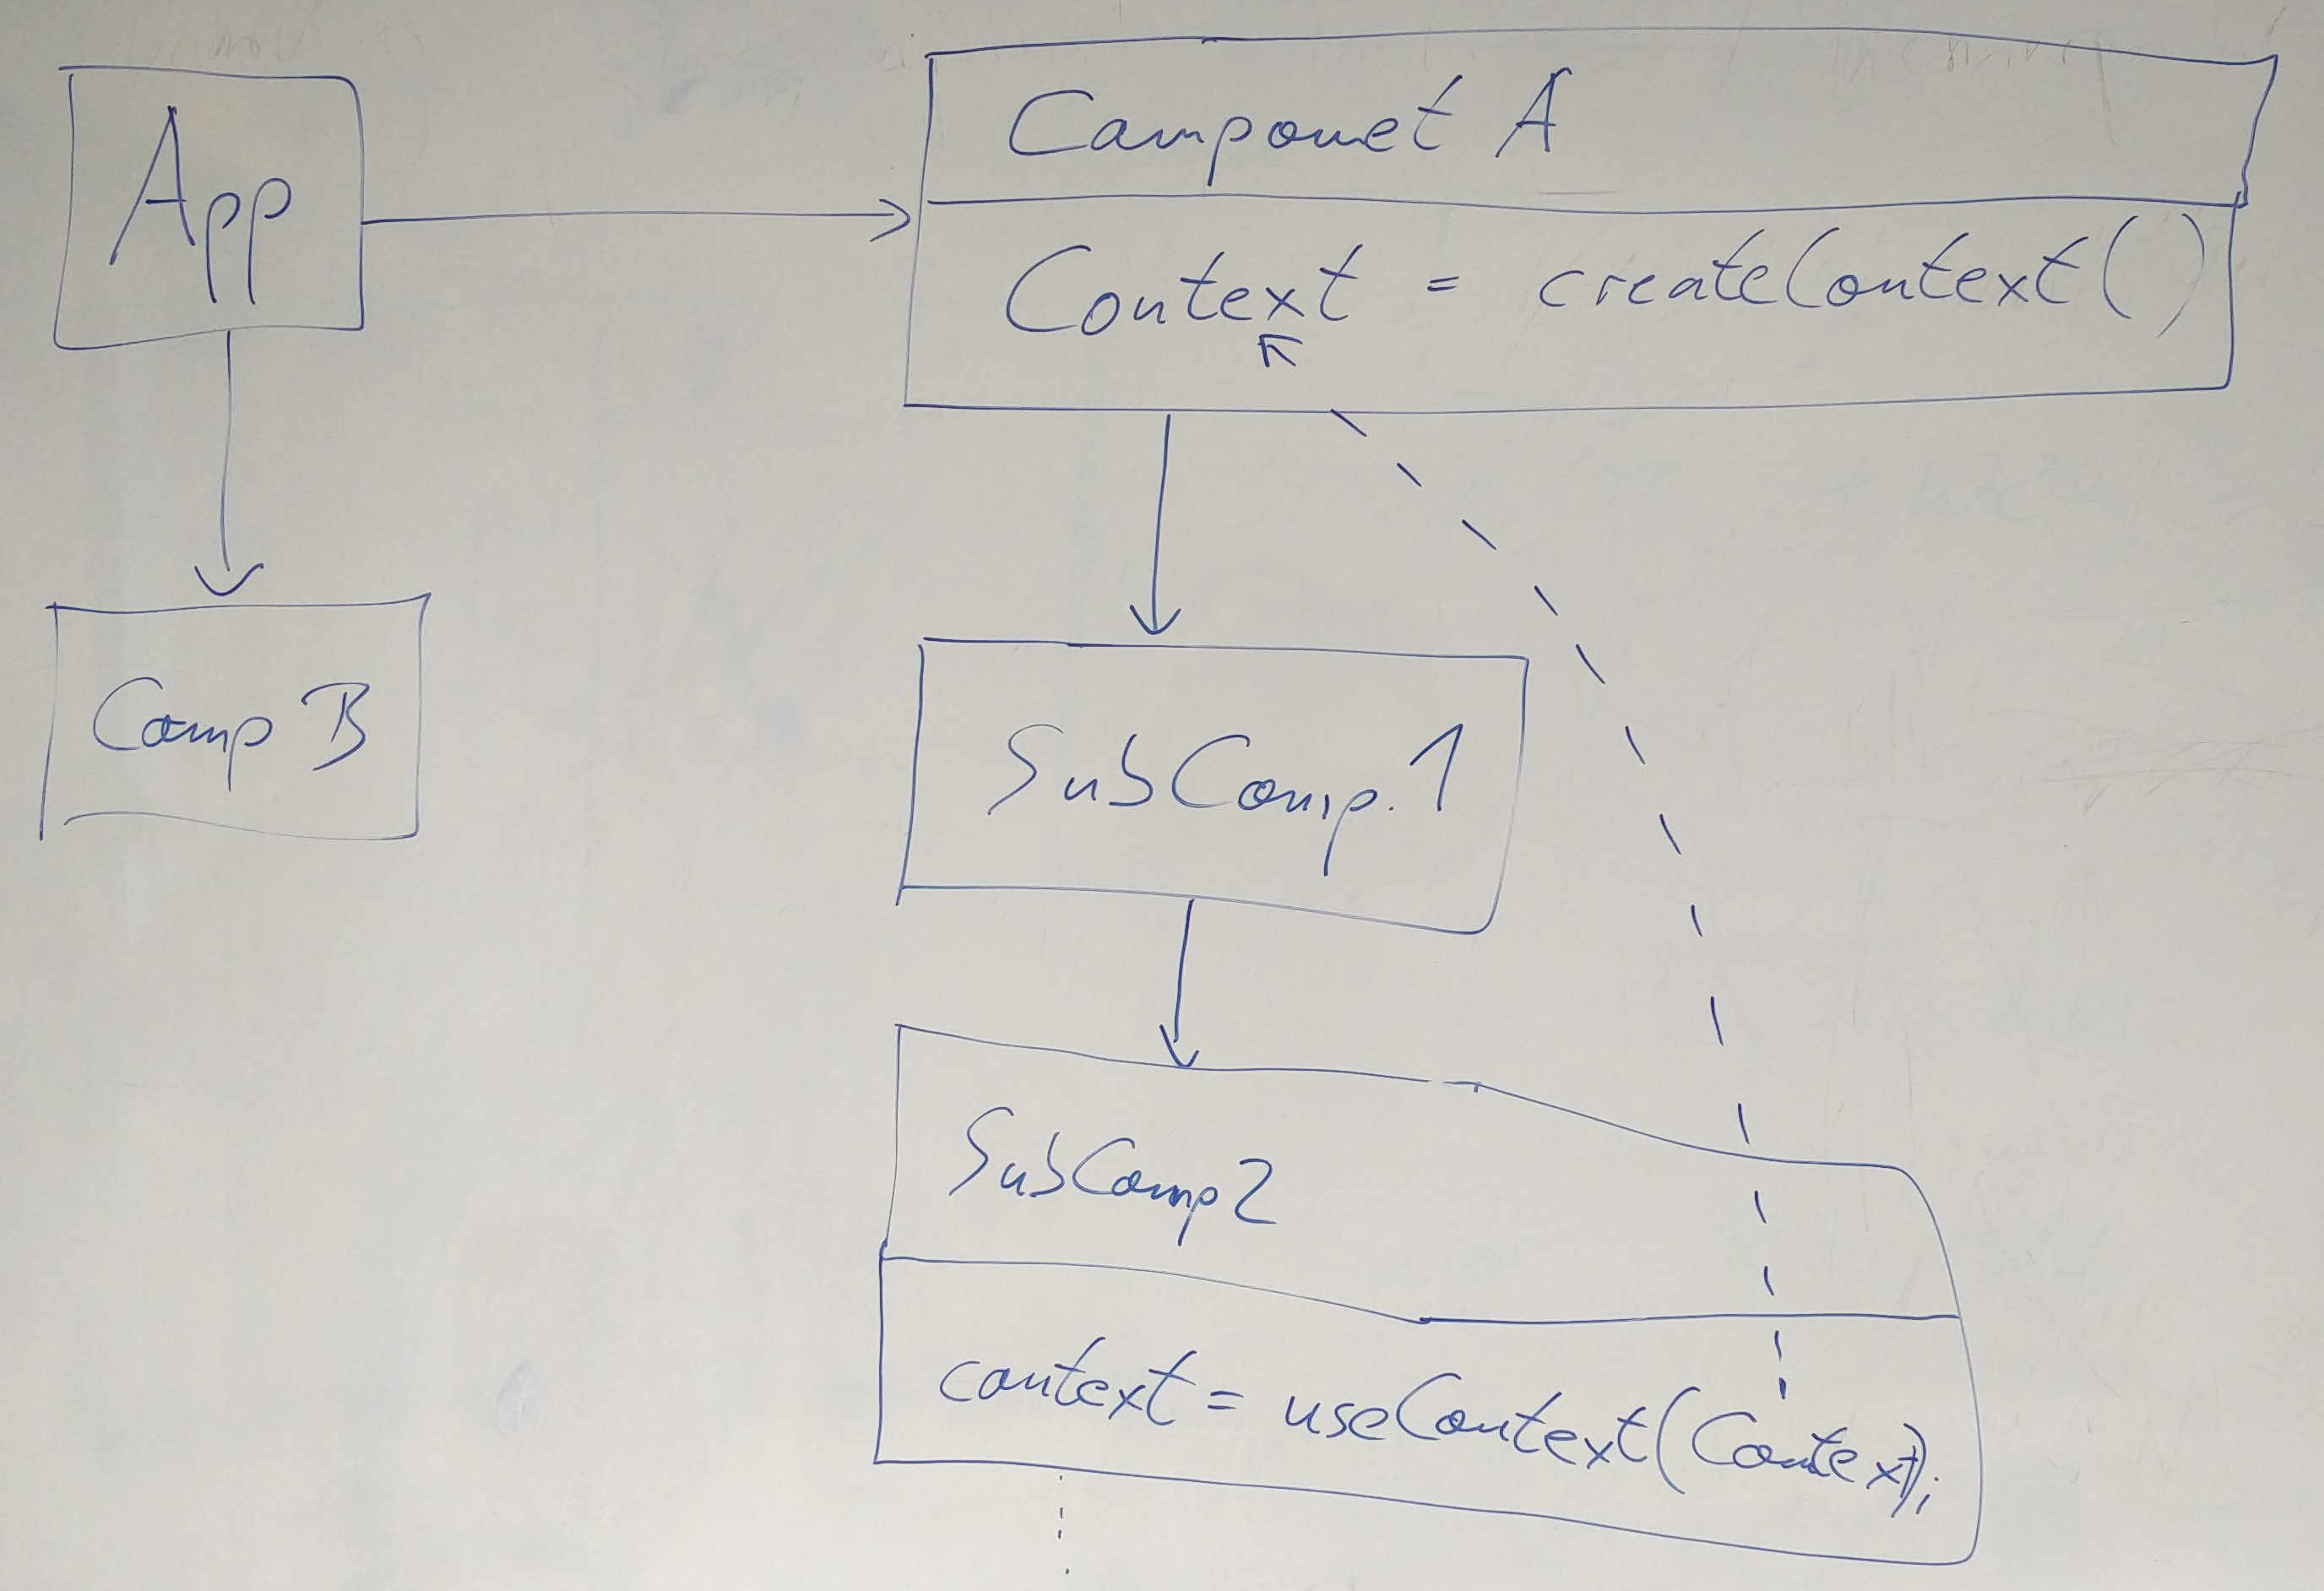 App
Componet A
Context = createContext()
Comp B
SubComp.1
SubComp2
context = useContext(Context);